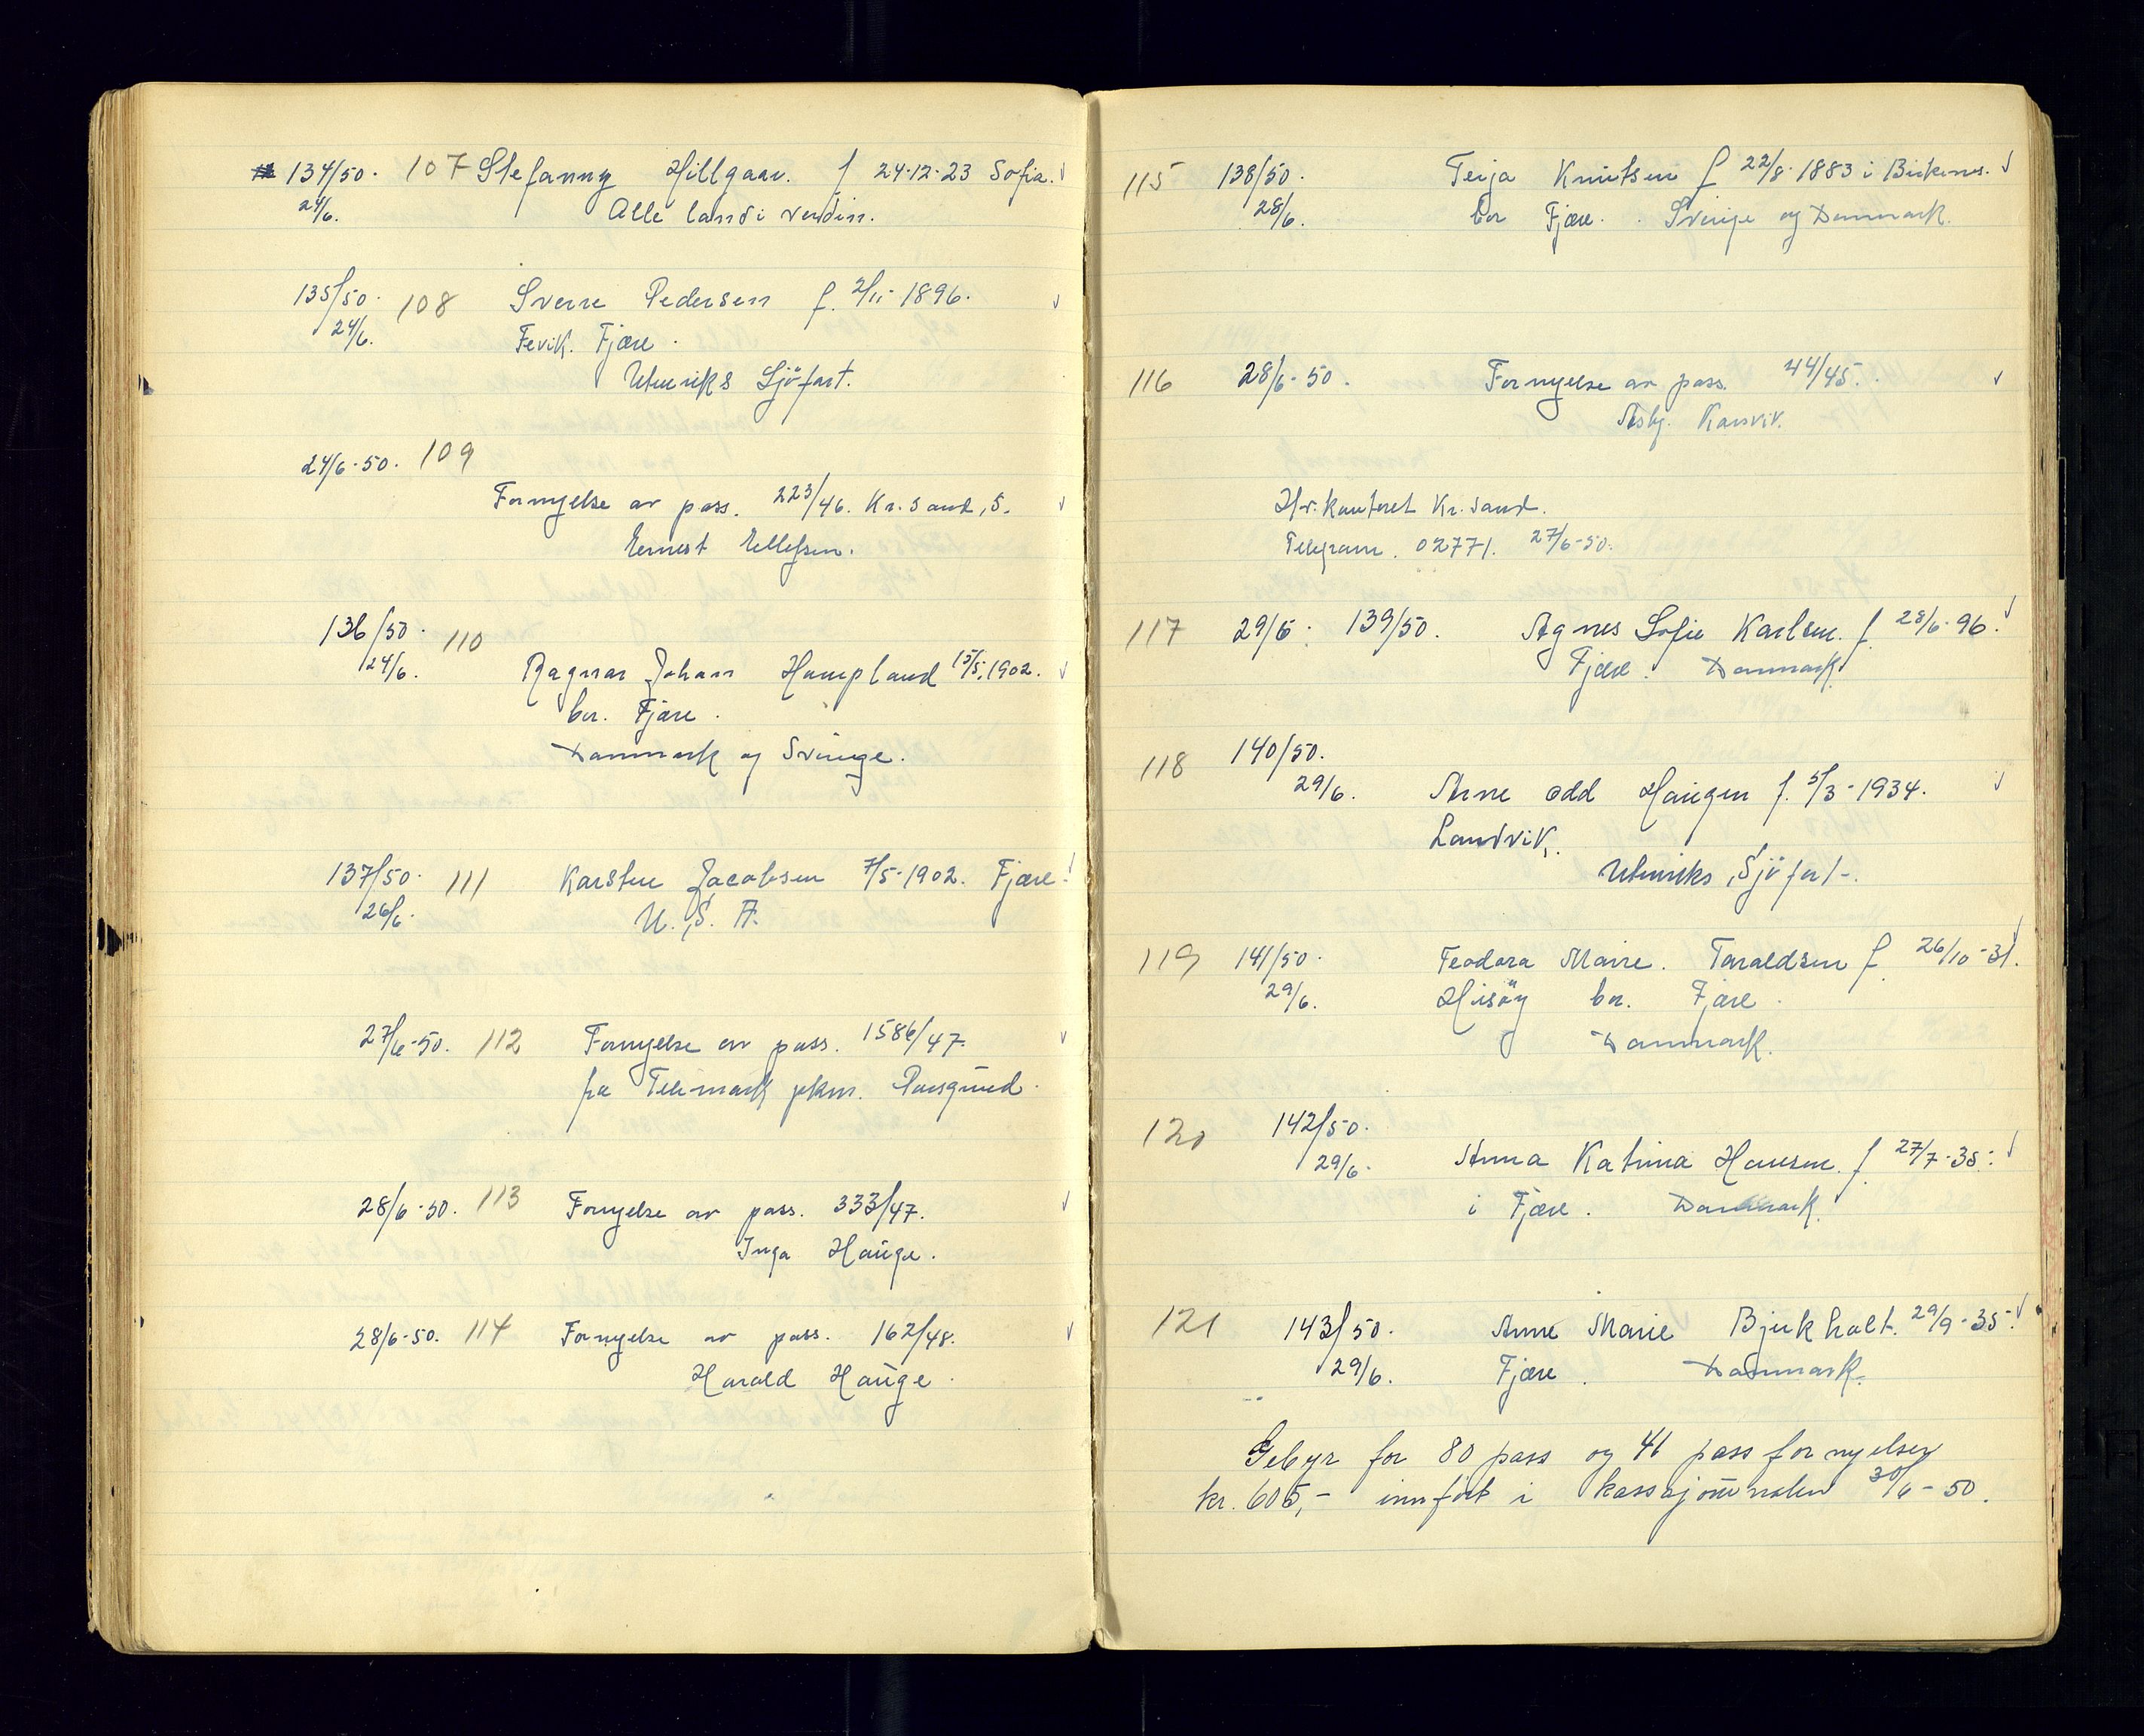 134/50. 107 Stefanny Hillgaar. f 24-12-23 Sofia.
24/6. Alle land i verden.
135/50. 108 Sverre Pedersen f. 2/11-1896.
24/6. Fevik. Fjære.
Utenriks Sjöfart.
24/6-50. 109
Fornyelse av pass. 223/46. Kr.sand, S.
Ernest Ellefsen.
136/50. 110
24/6. Ragnar Johan Haugland 15/5.1902.
bor. Fjære.
Danmark og Sverige.
137/50. 111 Karsten Jacobsen 7/5-1902. Fjære.
26/6. U.S.A.
27/6-50. 112 Fornyelse av pass. 1586/47.
fra Telemark pkm. Porsgrund.
28/6-50. 113 Fornyelse av pass. 333/47.
Inga Hauge.
28/6-50. 114 Fornyelse av pass. 162/48.
Harald Hauge.
115 138/50. Terja Knutsen f 22/8-1883 i Birkenes.
28/6. bor Fjære. Sverige og Danmark.
116 28/6-50. Fornyelse av pass. 44/45.
Asbj. Karsvik.
Hv.kontoret Kr.sand.
Telegram. 02771. 27/6-50.
117 29/6. 139/50. Agnes Sofie Karlsen. f 28/6-96.
Fjære. Danmark.
118 140/50.
29/6. Arne Odd Haugen f. 5/3-1934.
Landvik.
Utenriks Sjöfart-.
119 141/50. Teodora Marie. Taraldsen f 26/10-31.
29/6. Hisöy bor. Fjære.
Danmark.
120 142/50.
29/6. Anna Katrina Hansen. f 27/7-35.
i Fjære. Danmark.
121 143/50. Anne Marie Bjerkholt. 29/9-35.
29/6. Fjære. Danmark.
Gebyr for 80 pass og 41 passfornyelser
kr. 605,- innfört i kassajournalen 30/6-50.